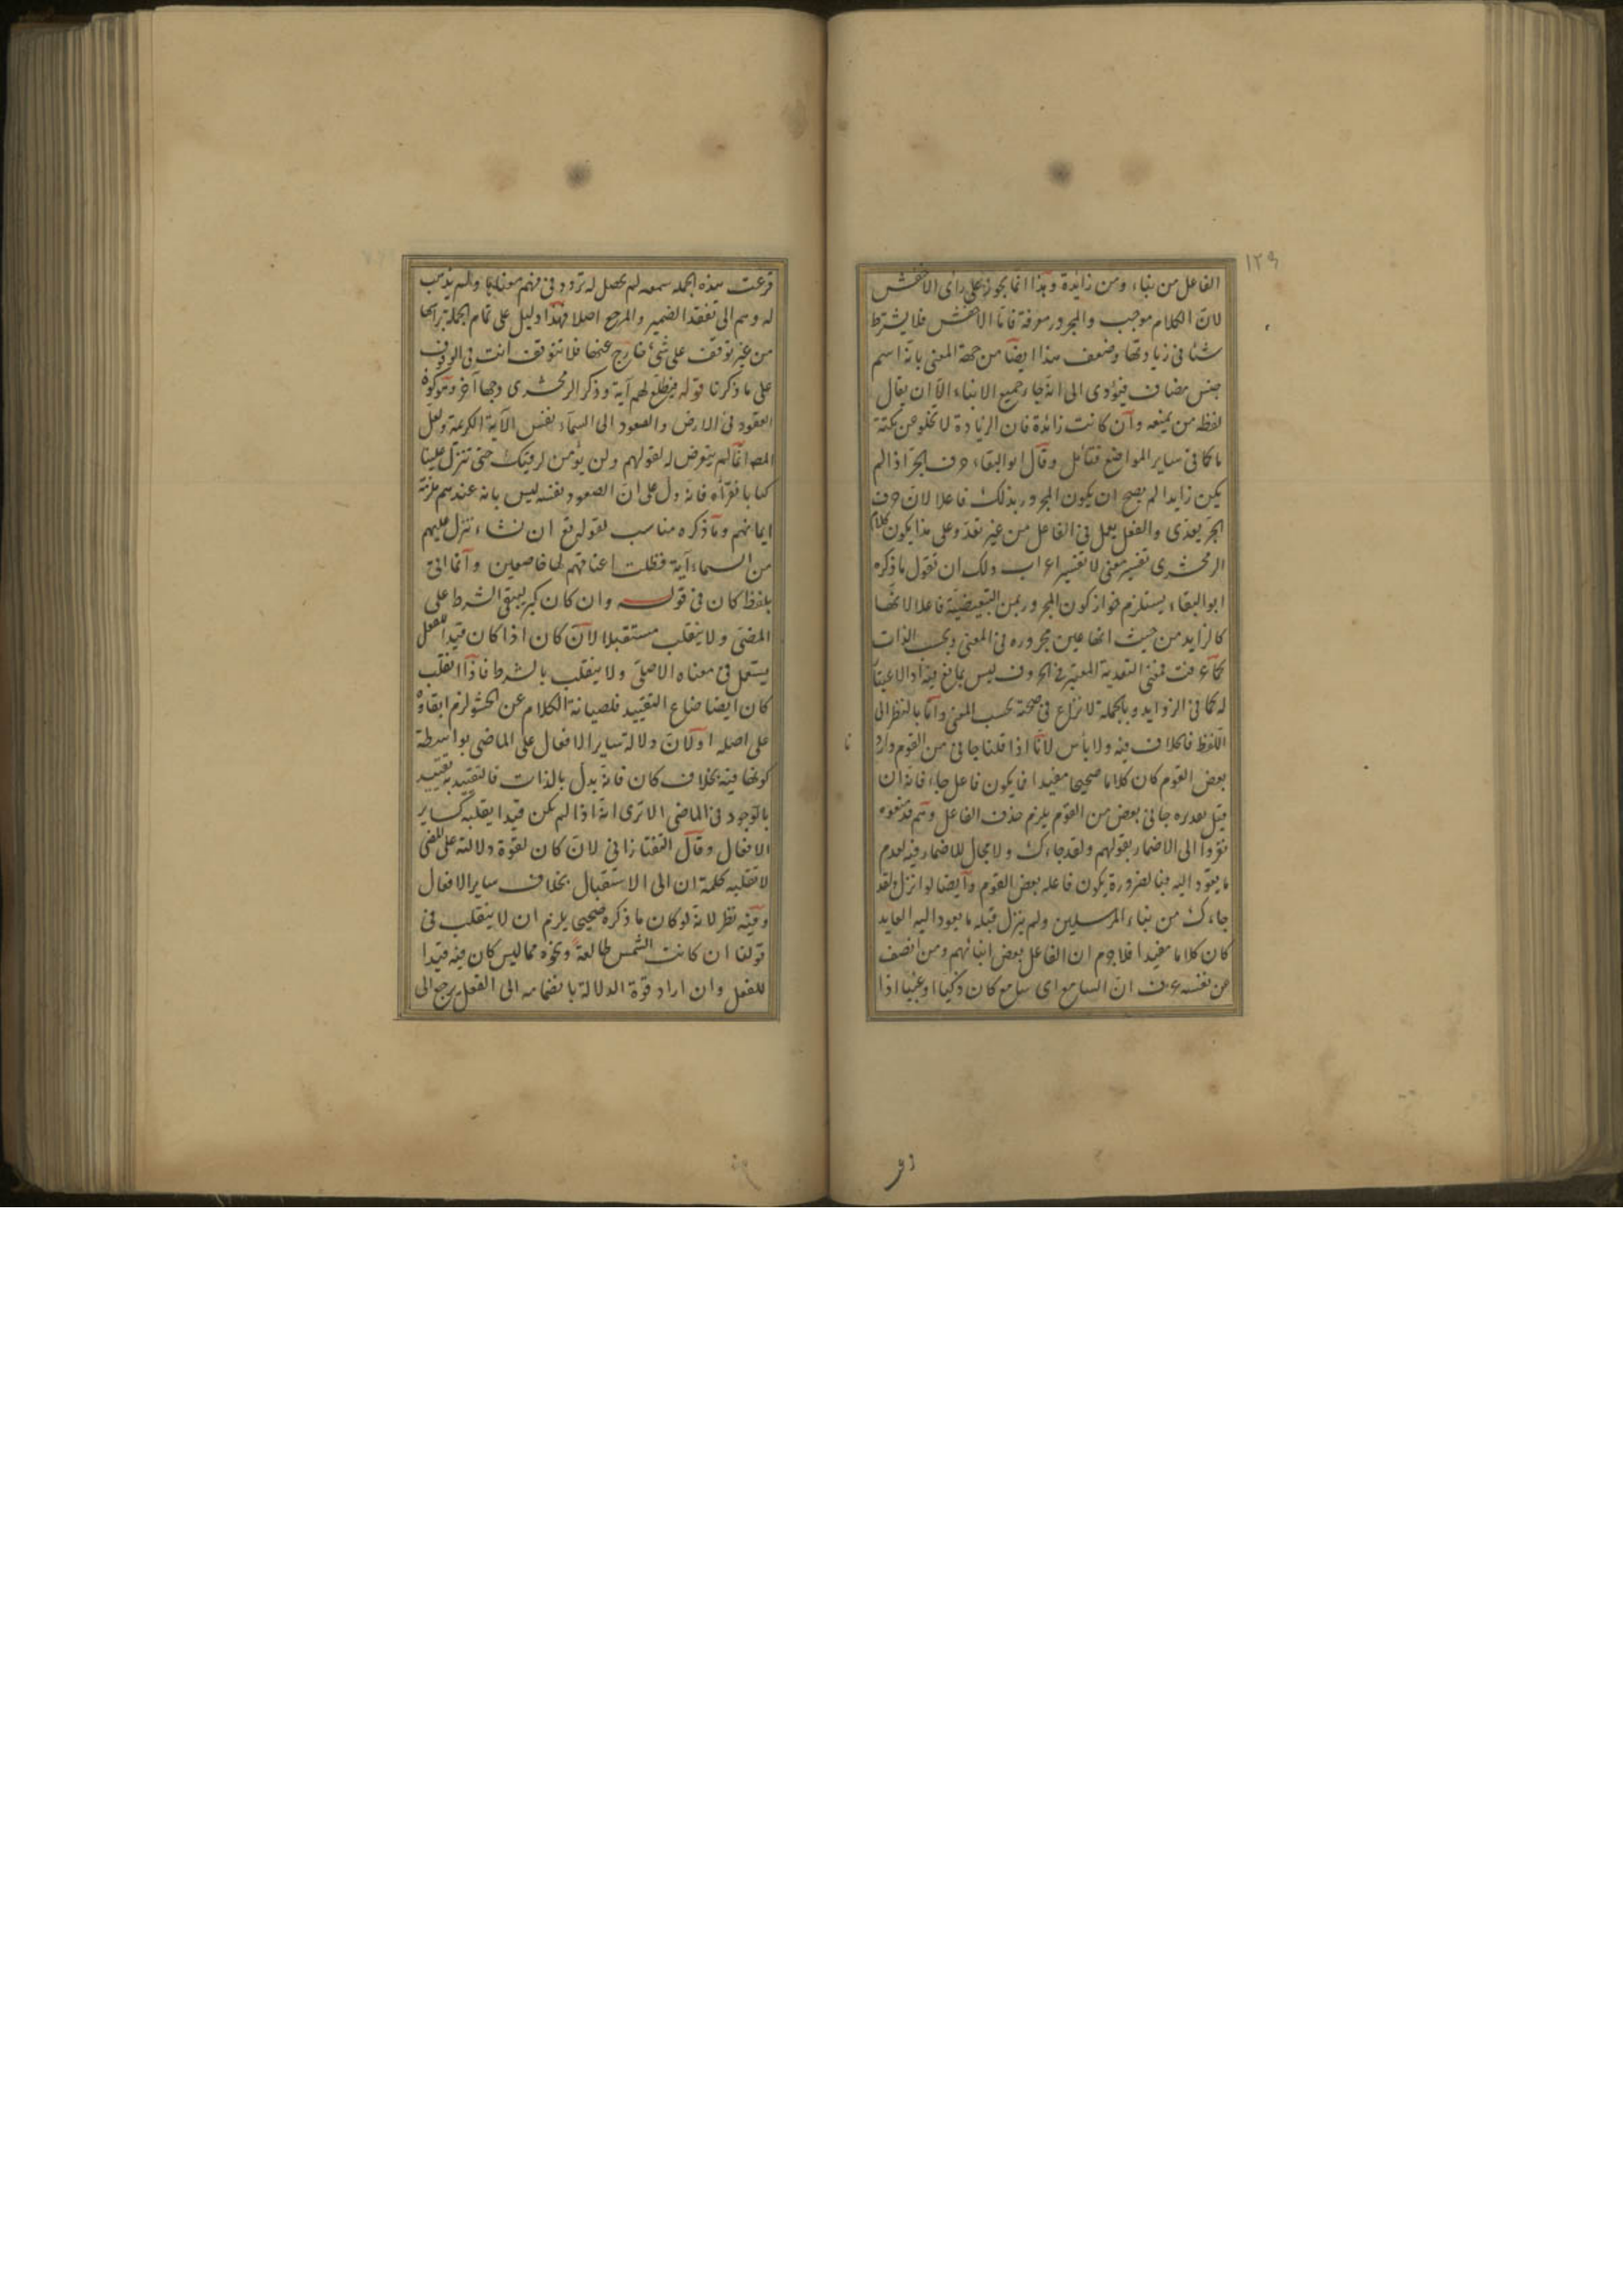 ١٢٩
الفاعل من نباء ومن زائدة وهذا انما يجوز على راى الاخفش
لان الكلام موجب والمجرور معرفة فاما الاخفش فلا يشترط
شئا فى زيادتها وضعف هذا ايضا من جهة المعنى بانه اسم
جنس مضاف فيؤدى الى انه جاء جميع الانباء الا ان يقال
لفظه من يمنعه وان كانت زائدة فان الزيادة لا تخلو عن نكتة
ما كما فى ساير المواضع فتامل وقال ابو البقاء حرف الجر اذا لم
يكن زايدا لم يصح ان يكون المجرور بذلك فاعلا لان حرف
الجر يعدى والفعل يعمل فى الفاعل من غير تعد وعلى هذا يكون كلام
الزمخشرى تفسير معنى لا تفسير اعراب ولك ان تقول ما ذكره
ابو البقاء يستلزم جواز كون المجرور بمن التبعيضية فاعلا لانها
كالزايد من حيث انها عين مجروره فى المعنى وبحسب الذات
كما عرفت فمعنى التعدية المعتبر فى الحروف ليس بمانع فيه اذ لا اعتبار
له كما فى الزوايد وبالجملة لا نزاع فى صحته بحسب المعنى واما بالنظر الى
اللفظ فالخلاف فيه ولا بأس لانا اذا قلنا جانى من القوم واراد
بعض القوم كان كلاما صحيحا مفيدا فما يكون فاعل جاء فانه ان
قيل تقديره جانى بعض من القوم يلزم حذف الفاعل وهم قد منعوه
ففروا الى الاضمار بقولهم ولقد جاءك ولا مجال للاضمار فيه لعدم
ما يعود اليه فبالضرورة يكون فاعله بعض القوم وايضا لو انزل ولقد
جاءك من نباء المرسلين ولم ينزل قبله ما يعود اليه العايد
كان كلاما مفيدا فلا جرم ان الفاعل بعض انبائهم ومن انصف
من نفسه عرف ان السامع اى سامع كان ذكيا او غبيا اذا
قرعت هذه الجمله سمعه لم يحصل له تردد فى فهم معناها ولم يذهب
له وهم الى تفقد الضمير والمرجع اصلا فهذا دليل على تمام الجملة براسها
من غير توقف على شئ خارج عنها فلا تتوقف انت فى الوقوف
على ما ذكرنا قوله فيطلع لهم آية وذكر الزمخشرى وجها آخر وهو كون
العقود فى الارض والصعود الى السماء نفس الآية الكريمة ولعل
المصه انما لم يتعرض له لقولهم ولن نؤمن لرقيك حتى تنزل علينا
كتابا نقرأه فانه دل على ان الصعود نفسه ليس بآية عندهم ملزمة
ايمانهم وما ذكره مناسب لقوله تع ان نشاء ننزل عليهم
من السماء آية فظلت اعناقهم لها خاضعين وانما اتى
بلفظ كان فى قوله وان كان كبر ليبقى الشرط على
المضى ولا ينقلب مستقبلا لان كان اذا كان قيدا للفعل
يستعمل فى معناه الاصلى ولا ينقلب بالشرط فاذا انقلب
كان ايضا ضاع التقييد فلصيانة الكلام عن الحشو لزم ابقاؤه
على اصله اولان دلالة ساير الافعال على الماضى بواسطة
كونها فيه بخلاف كان فانه يدل بالذات فالتقييد به تقييد
بالوجود فى الماضى الا ترى انه اذا لم يكن قيدا يقلبه كساير
الافعال وقال التفتازانى لان كان لقوة دلالته على المضى
لا تقلبه كلمة ان الى الاستقبال بخلاف ساير الافعال
وفيه نظر لانه لو كان ما ذكره صحيحا يلزم ان لا ينقلب فى
قولنا ان كانت الشمس طالعة ونحوه مما ليس كان فيه قيدا
للفعل وان اراد قوة الدلالة بانضمامه الى الفعل يرجع الى